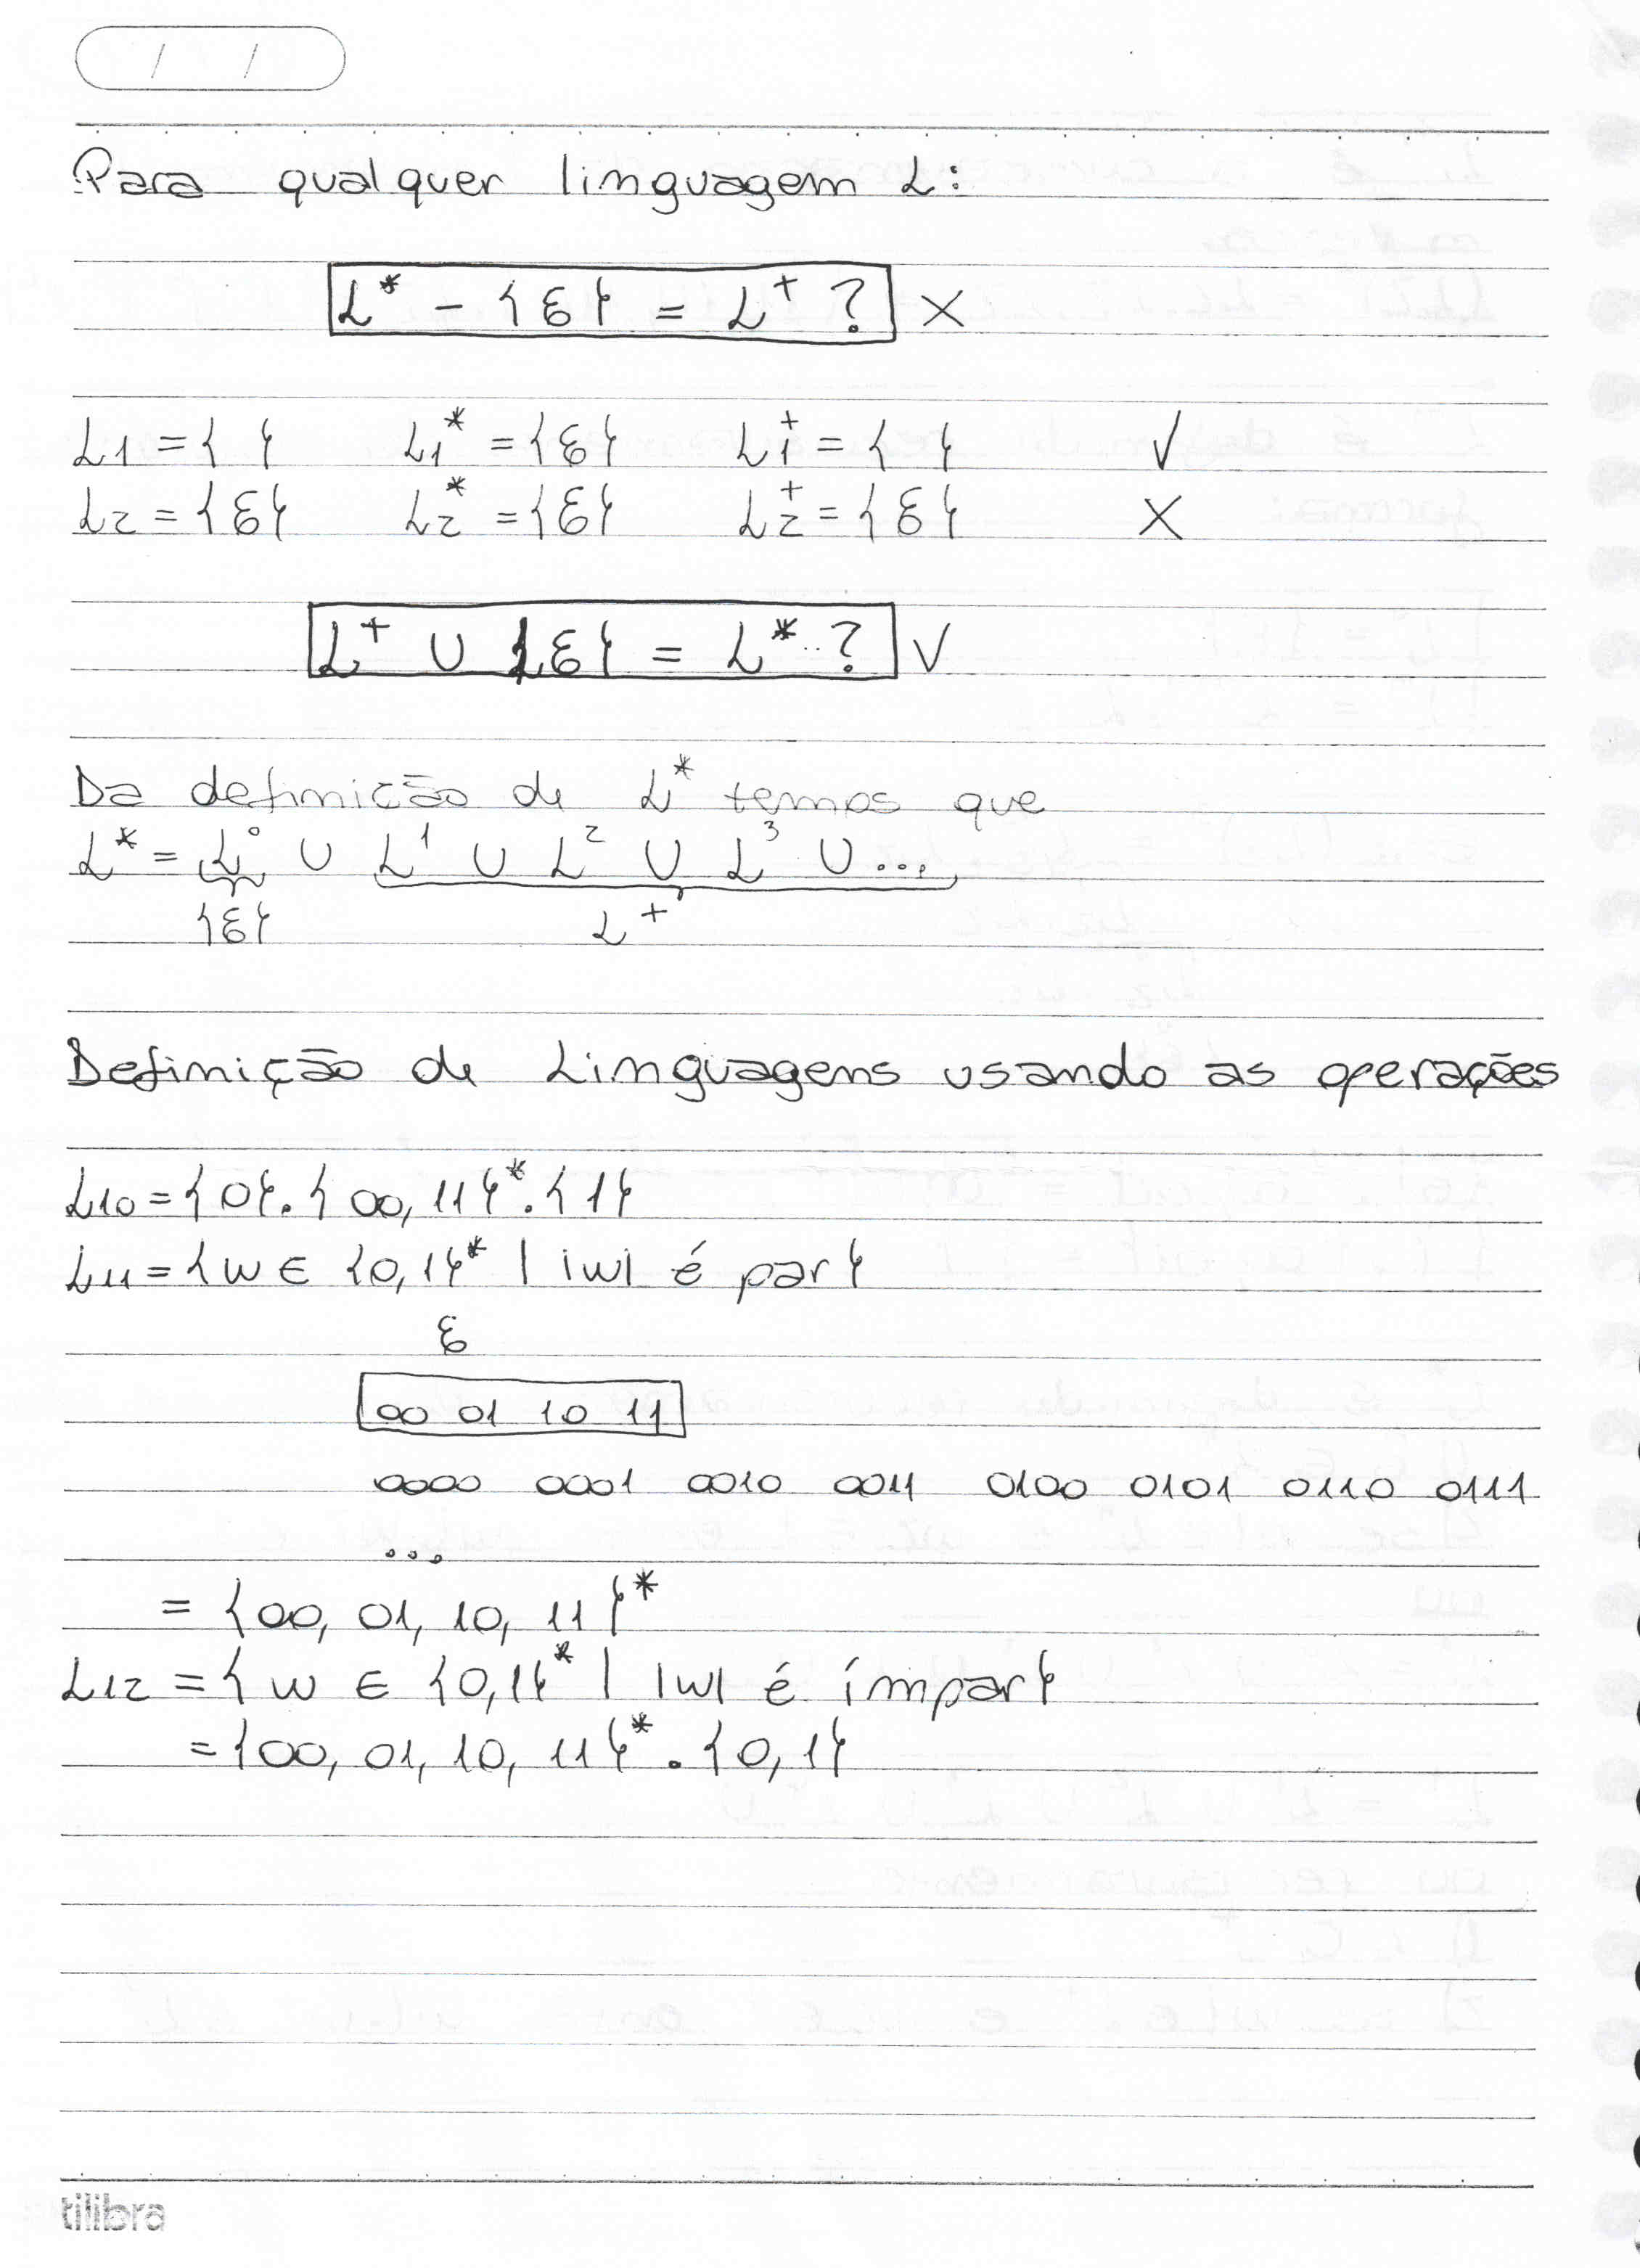 / /
Para qualquer linguagem L:
L* - {ε} = L⁺ ? X
L1 = { } L1* = {ε} L1⁺ = { } ✓
L2 = {ε} L2* = {ε} L2⁺ = {ε} X
L⁺ ∪ {ε} = L* ? ✓
Da definição de L* temos que
L* = L⁰ ∪ L¹ ∪ L² ∪ L³ ∪ ...
{ε} L⁺
Definição de Linguagens usando as operações
L10 = {0}.{00, 11}*.{1}
L11 = {w ∈ {0,1}* | |w| é par}
ε
00 01 10 11
0000 0001 0010 0011 0100 0101 0110 0111
...
= {00, 01, 10, 11}*
L12 = {w ∈ {0,1}* | |w| é ímpar}
= {00, 01, 10, 11}*.{0,1}
tilibra